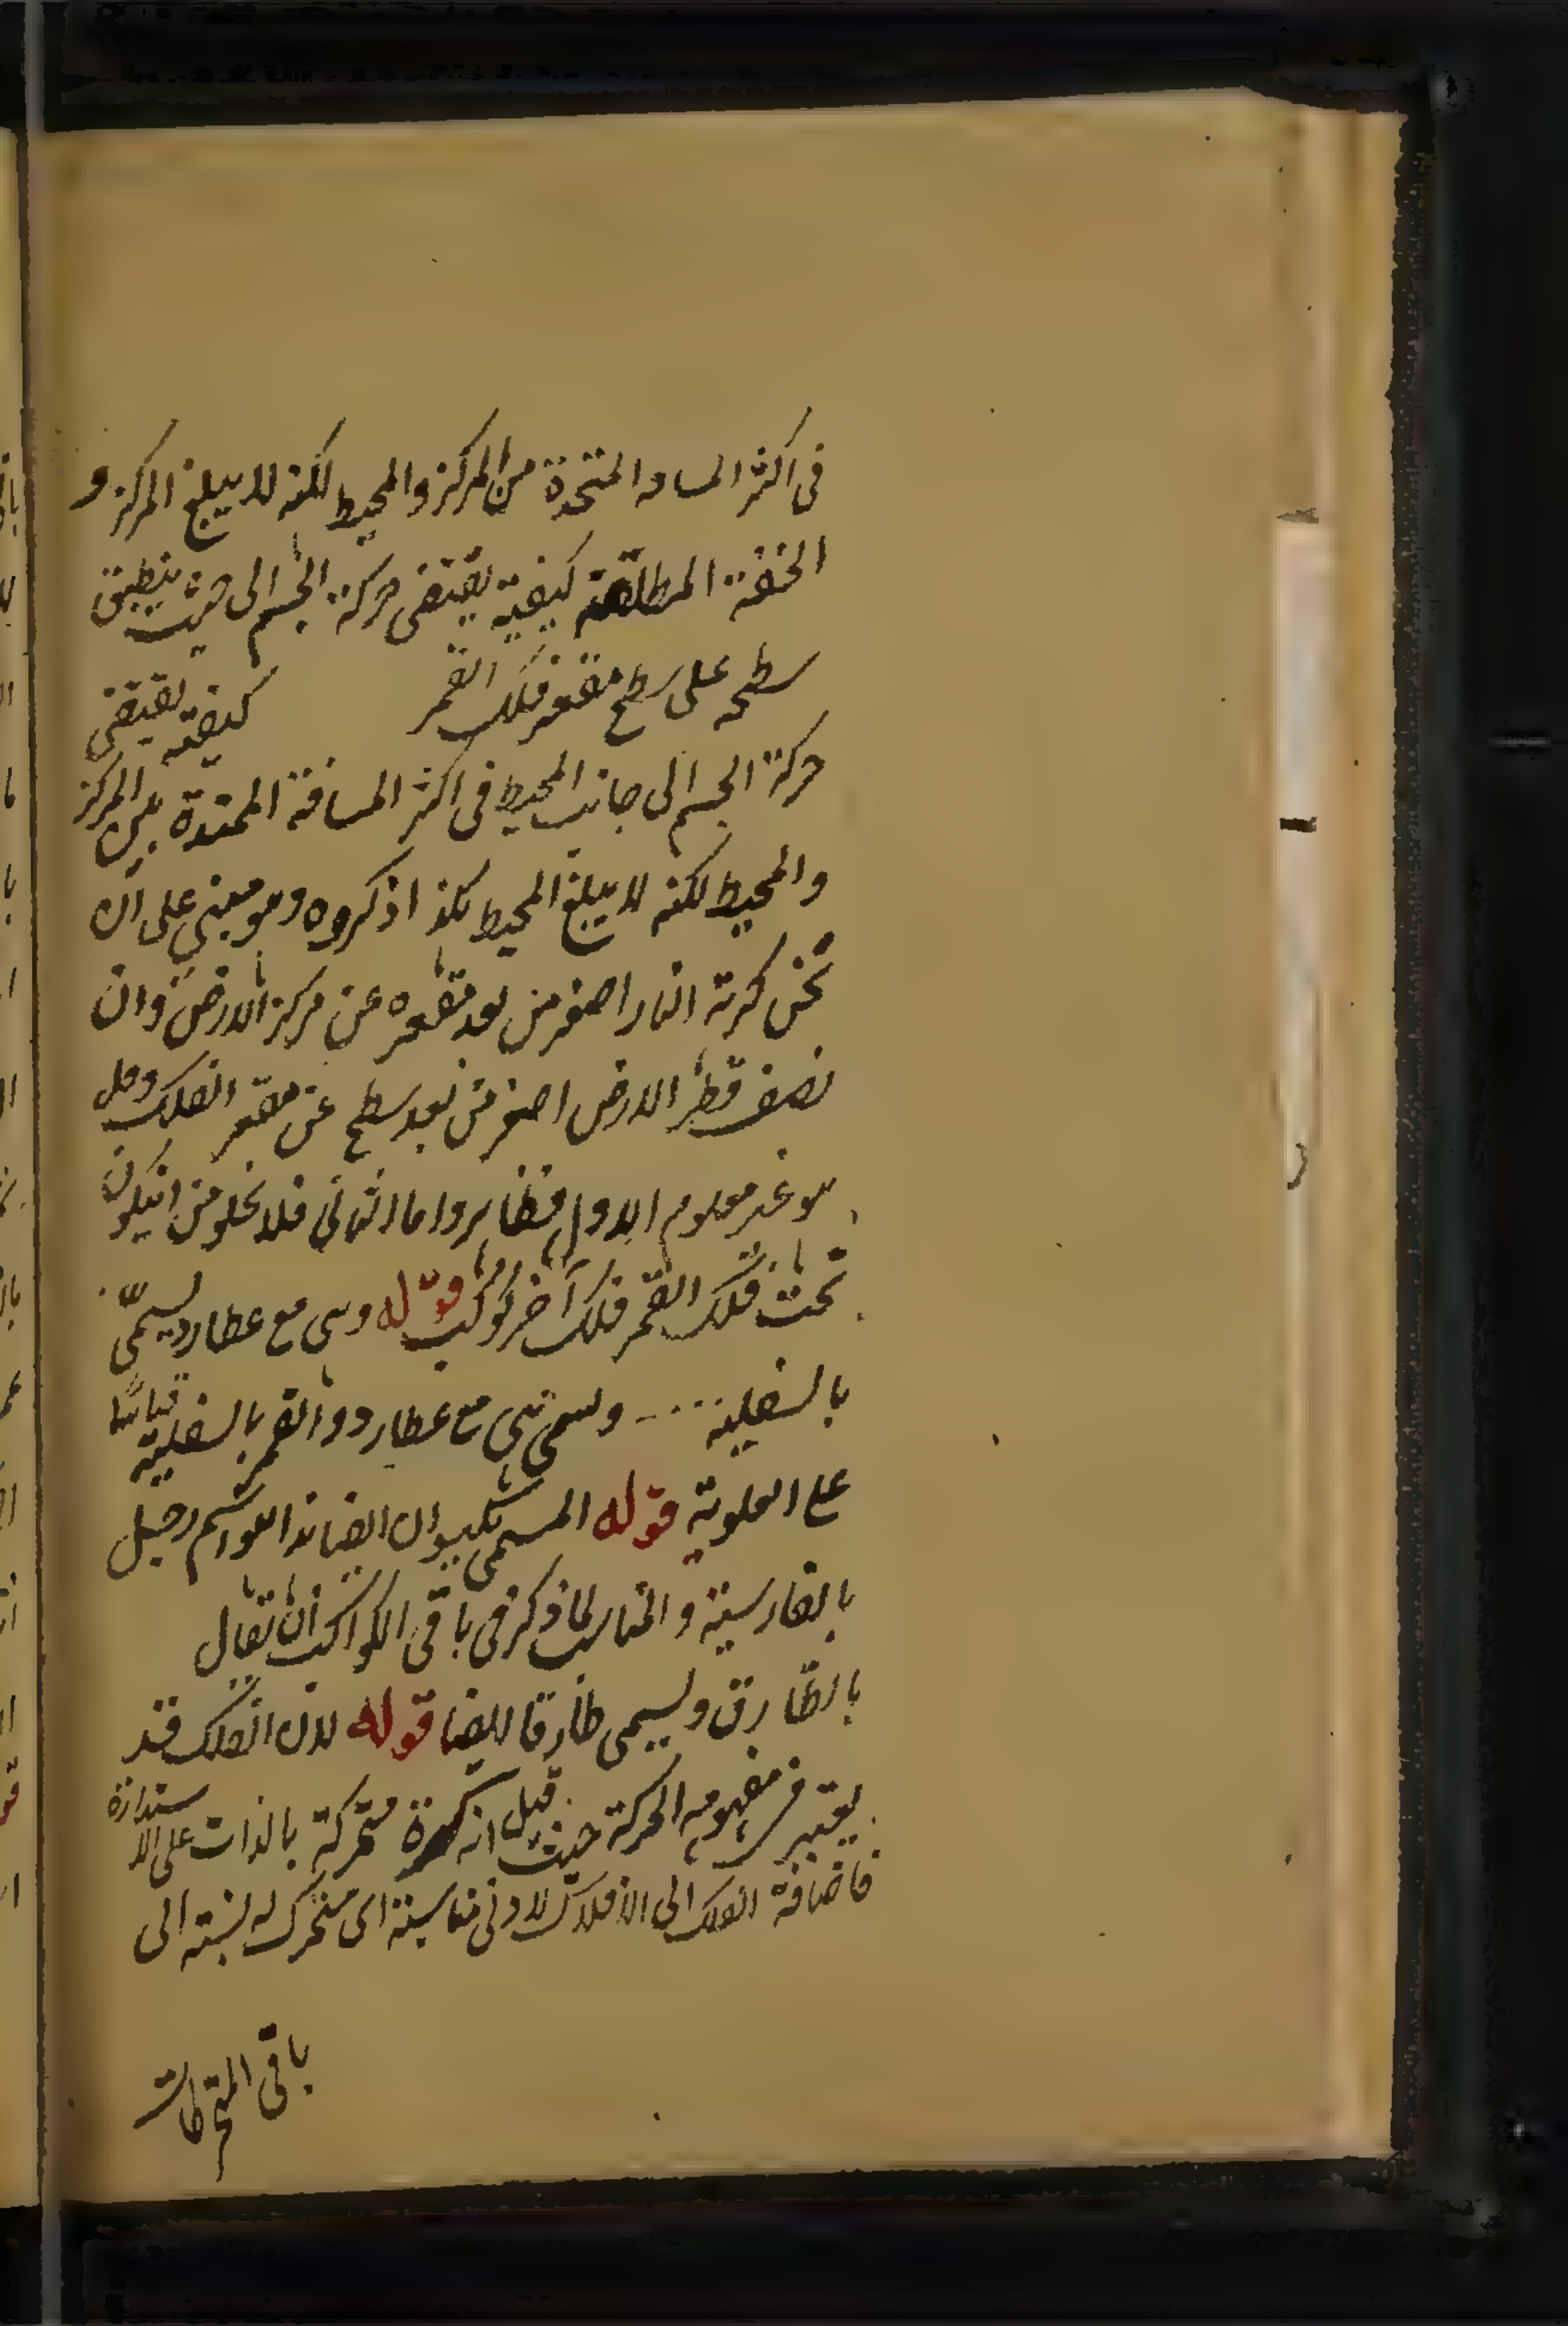 في اكثر المسافه المتحدة من المركز والمحيط لكنه لا يبلغ المركز و
الخفة المطلقة كيفية يقتضى حركة الجسم الى حيث ينطبق
سطحه على سطح مقعر فلك القمر كيفية تقتضى
حركة الجسم الى جانب المحيط في اكثر المسافة الممتدة بين المركز
والمحيط لكنه لا يبلغ المحيط هكذا ذكروه وهو مبني على ان
ثخن كرة النار اصغر من بعد مقعره عن مركز الارض وان
نصف قطر الارض اصغر من بعد سطح عن مقعر الفلك وكل
هو غير معلوم الاول فظاهر واما الثاني فلا يخلو من انيكون
تحت فلك القمر فلك آخر كوكب قوله وهي مع عطارد يسمى
بالسفلية وسمى هي مع عطارد والقمر بالسفلية قياسا
على العلوية قوله المسمى بكيوان ايضا هذا هو اسم زحل
بالفارسية والمناسب لما ذكر في باقي الكواكب ان يقال
بالطارق ويسمى طارقا ايضا قوله لان الفلك قد
يعتبر في مفهومه الحركة حيث قيل انه كرة متحركة بالذات على الاستدارة
فاضافة الفلك الى الافلاك لادنى مناسبة اى متحرك له نسبة الى
باقي المتحركات